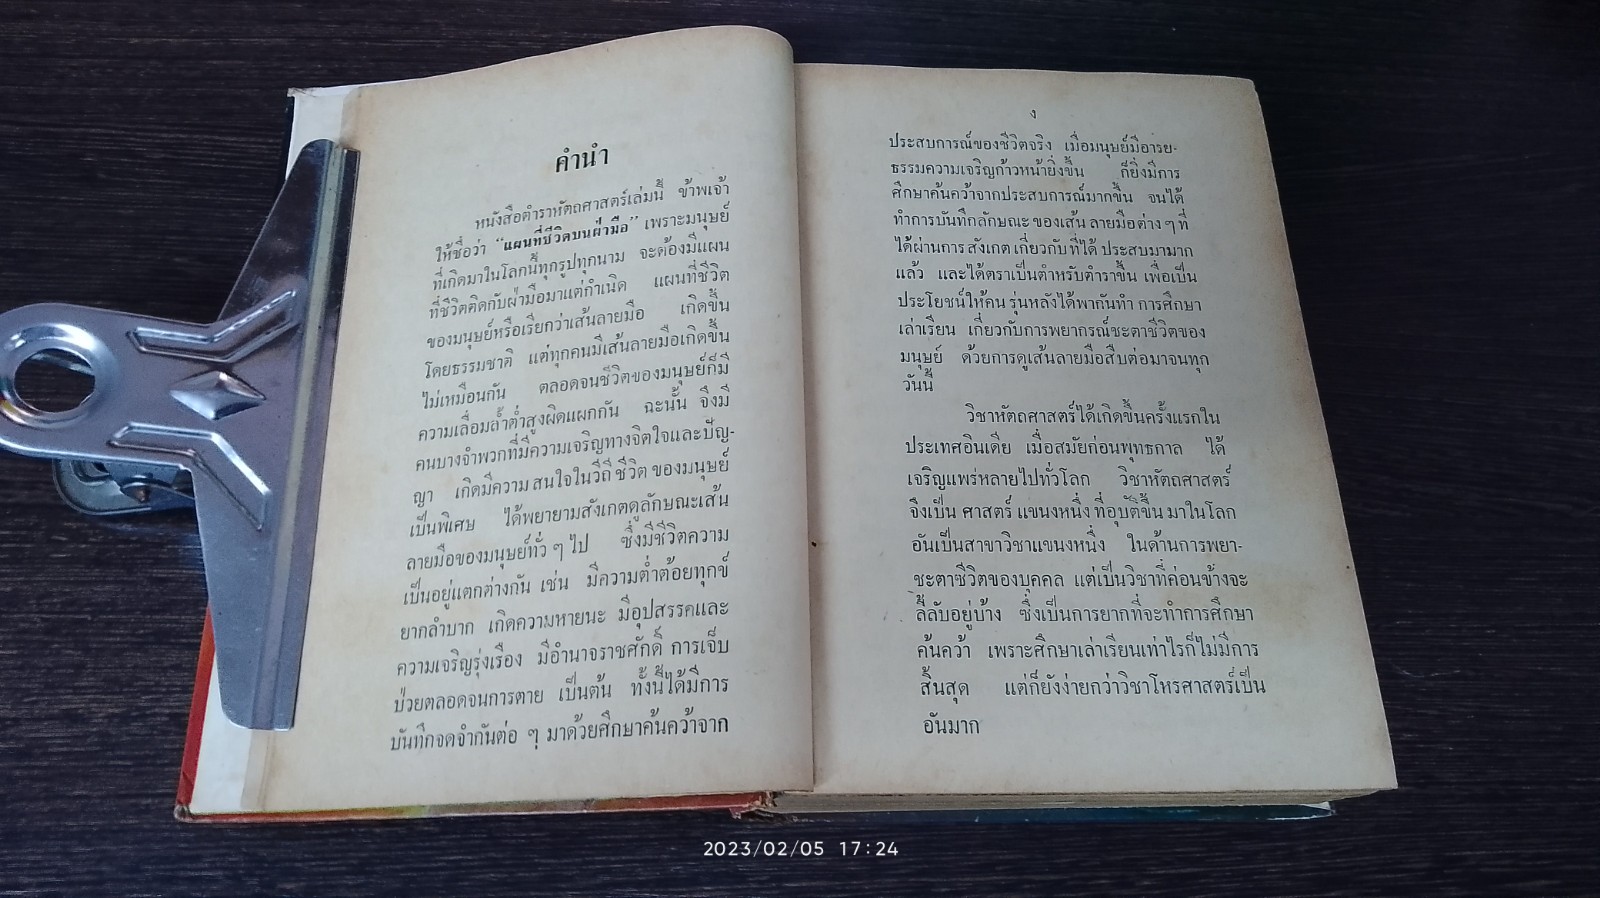 คำนำ
หนังสือตำราหัตถศาสตร์เล่มนี้ ข้าพเจ้า
ให้ชื่อว่า “แผนที่ชีวิตบนฝ่ามือ” เพราะมนุษย์
ที่เกิดมาในโลกนี้ทุกรูปทุกนาม จะต้องมีแผน
ที่ชีวิตติดกับฝ่ามือมาแต่กำเนิด แผนที่ชีวิต
ของมนุษย์หรือเรียกว่าเส้นลายมือ เกิดขึ้น
โดยธรรมชาติ แต่ทุกคนมีเส้นลายมือเกิดขึ้น
ไม่เหมือนกัน ตลอดจนชีวิตของมนุษย์ก็มี
ความเลื่อมล้ำต่ำสูงผิดแผกกัน ฉะนั้น จึงมี
คนบางจำพวกที่มีความเจริญทางจิตใจและปัญ-
ญา เกิดมีความ สนใจในวิถี ชีวิต ของมนุษย์
เป็นพิเศษ ได้พยายามสังเกตดูลักษณะเส้น
ลายมือของมนุษย์ทั่ว ๆ ไป ซึ่งมีชีวิตความ
เป็นอยู่แตกต่างกัน เช่น มีความต่ำต้อยทุกข์
ยากลำบาก เกิดความหายนะ มีอุปสรรคและ
ความเจริญรุ่งเรือง มีอำนาจราชศักดิ์ การเจ็บ
ป่วยตลอดจนการตาย เป็นต้น ทั้งนี้ได้มีการ
บันทึกจดจำกันต่อ ๆ มาด้วยศึกษาค้นคว้าจาก
ง
ประสบการณ์ของชีวิตจริง เมื่อมนุษย์มีอารย-
ธรรมความเจริญก้าวหน้ายิ่งขึ้น ก็ยิ่งมีการ
ศึกษาค้นคว้าจากประสบการณ์มากขึ้น จนได้
ทำการบันทึกลักษณะ ของเส้น ลายมือต่าง ๆ ที่
ได้ผ่านการ สังเกต เกี่ยวกับ ที่ได้ ประสบมามาก
แล้ว และได้ตราเป็นตำหรับตำราขึ้น เพื่อเป็น
ประโยชน์ให้คน รุ่นหลังได้พากันทำ การศึกษา
เล่าเรียน เกี่ยวกับการพยากรณ์ชะตาชีวิตของ
มนุษย์ ด้วยการดูเส้นลายมือสืบต่อมาจนทุก
วันนี้
วิชาหัตถศาสตร์ได้เกิดขึ้นครั้งแรกใน
ประเทศอินเดีย เมื่อสมัยก่อนพุทธกาล ได้
เจริญแพร่หลายไปทั่วโลก วิชาหัตถศาสตร์
จึงเป็น ศาสตร์ แขนงหนึ่ง ที่อุบัติขึ้น มาในโลก
อันเป็นสาขาวิชาแขนงหนึ่ง ในด้านการพยา-
ชะตาชีวิตของบุคคล แต่เป็นวิชาที่ค่อนข้างจะ
ลี้ลับอยู่บ้าง ซึ่งเป็นการยากที่จะทำการศึกษา
ค้นคว้า เพราะศึกษาเล่าเรียนเท่าไรก็ไม่มีการ
สิ้นสุด แต่ก็ยังง่ายกว่าวิชาโหรศาสตร์เป็น
อันมาก
2023/02/05 17:24